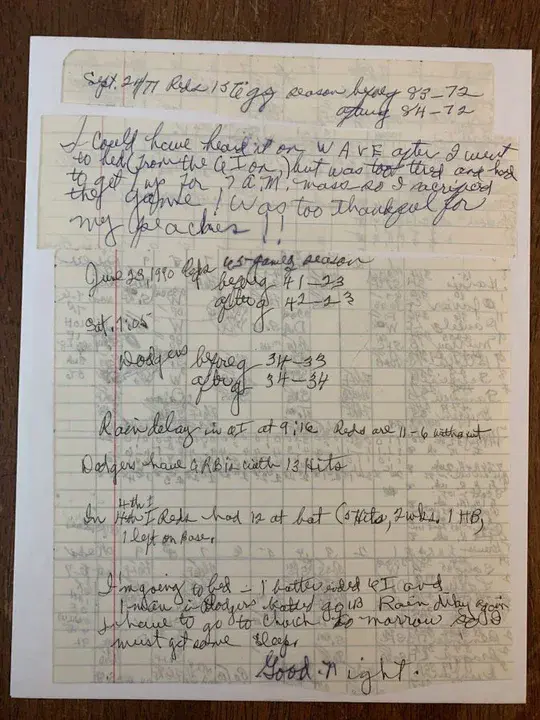 Sept. 24/77 Reds 156g season before 83-72
after g 84-72
I could have heard it on WAVE after I went
to bed (from the 9 I on,) but was too tired and had
to get up for 7 A.M. mass so I sacrificed
the game! Was too thankful for
my peaches!!
June 23, 1990 Reds 65 games season
before g 41-23
after g 42-23
Sat. 7:05
Dodgers before g 34-33
after g 34-34
Rain delay in 9I at 9:16 Reds are 11-6 without
Dodgers have 9 RBIs with 13 Hits
4th I
In 4th I Reds had 12 at bat (5 Hits, 2 wks. 1 HB,
1 left on Base.
I'm going to bed - 1 batter ended I and
1 man in Dodgers batted go 1B Rain delay again
I have to go to church to morrow so I
must get some sleep.
Good night.